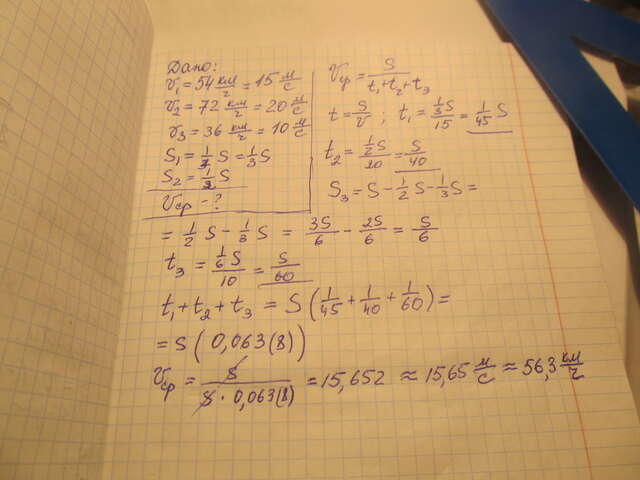 Дано:
V₁ = 54 км/ч = 15 м/с
V₂ = 72 км/ч = 20 м/с
V₃ = 36 км/ч = 10 м/с
S₁ = 1/3 S = 1/3 S
S₂ = 1/2 S
Vср - ?
Vср = S/(t₁+t₂+t₃)
t = S/V ; t₁ = (1/3 S)/15 = 1/45 S
t₂ = (1/2 S)/20 = S/40
S₃ = S - 1/2 S - 1/3 S =
= 1/2 S - 1/3 S = 3S/6 - 2S/6 = S/6
t₃ = (1/6 S)/10 = S/60
t₁ + t₂ + t₃ = S(1/45 + 1/40 + 1/60) =
= S(0,063(8))
Vср = S/(S · 0,063(8)) = 15,652 ≈ 15,65 м/с ≈ 56,3 км/ч